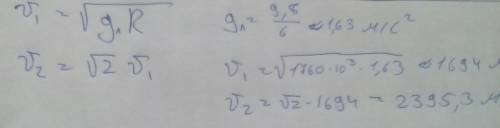 v₁ = √(gл R)
gл = 9,8/6 ≈ 1,63 м/с²
v₂ = √2 v₁
v₁ = √(1760·10³·1,63) ≈ 1694 м
v₂ = √2·1694 = 2395,3 м